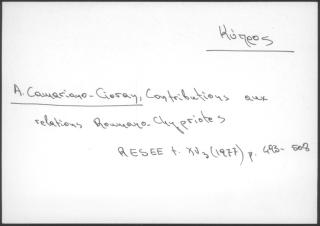 Κύπρος
A. Camariano-Cioran, Contributions aux
relations Roumano-Chypriotes
RESEE t. XV₃ (1977) p. 493-508